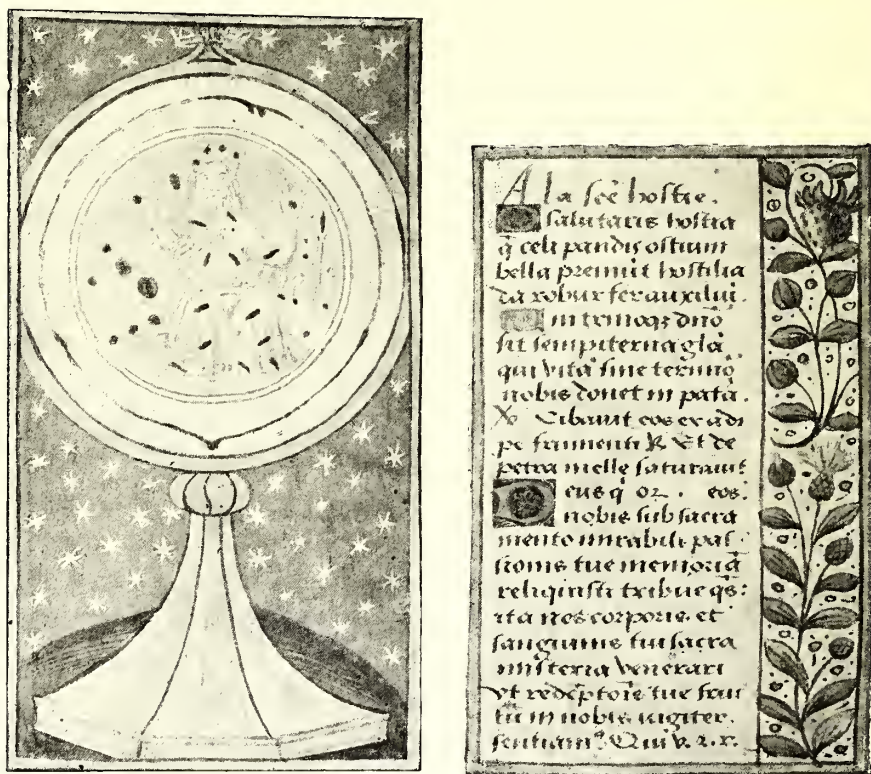 A la scē hostie.
O salutaris hostia
q̄ celi pandis ostium
bella premūt hostilia
da robur fer auxiliū.
Uni trinoqȝ dn̄o
sit sempiterna gl̄a
qui vitā sine termīo
nobis donet in patā.
℣ Cibavit eos ex adi
pe frumenti ℟. Et de
petra melle saturavit
Deus q̄ oz. eos.
nobis sub sacra
mento mirabili pas
sionis tue memoriā
reliquisti tribue qs:
ita nos corporis et
sanguinis tui sacra
misteria venerari
vt redēptōis tue fruc
tū in nobis iugiter.
sentiam9 Qui v. z. r.